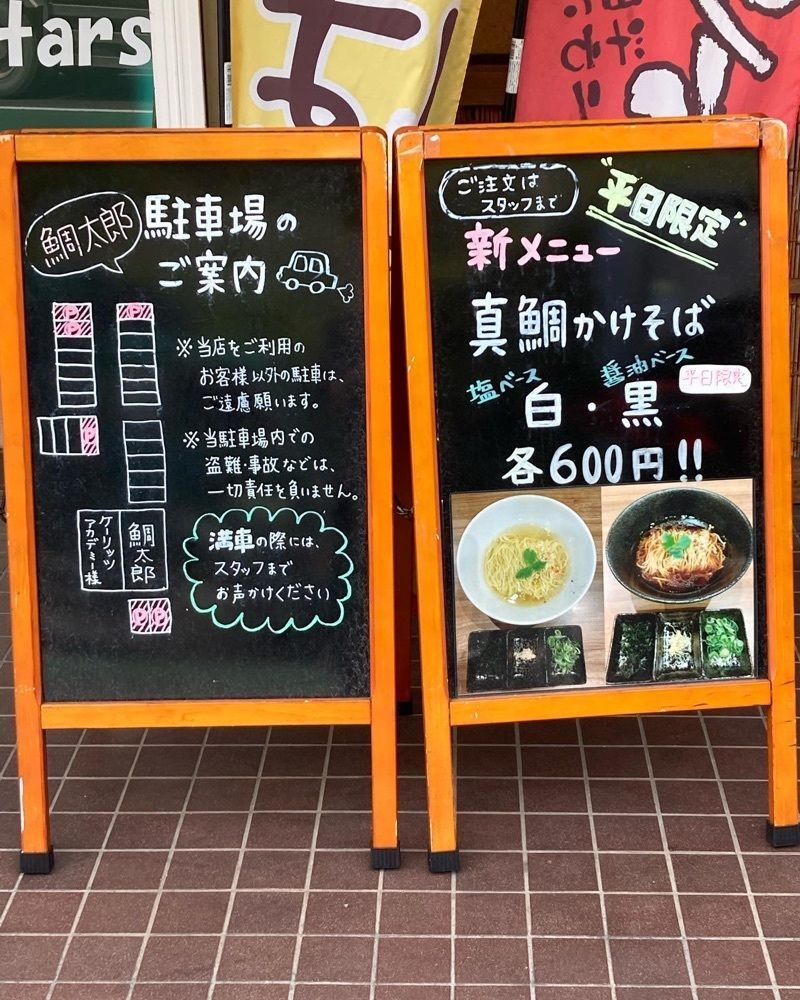 tars
鯛太郎
駐車場の
ご案内
P
P
P
P
※当店をご利用の
お客様以外の駐車は、
ご遠慮願います。
※当駐車場内での
盗難・事故などは、
一切責任を負いません。
ケーリッツ
アカデミー様
鯛太郎
P P
満車の際には、
スタッフまで
お声かけください
ご注文は
スタッフまで
平日限定
新メニュー
真鯛かけそば
塩ベース
醤油ベース
平日限定
白・黒
各600円!!